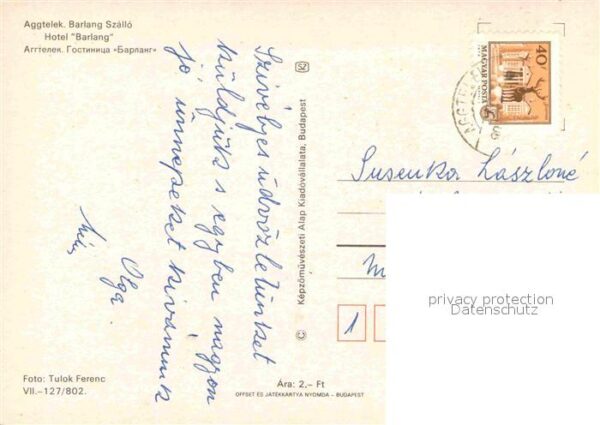 Aggtelek. Barlang Szálló
Hotel "Barlang"
Аггтелек. Гостиница «Барланг»
Szívélyes üdvözletünket
küldjük s egyben nagyon
jó ünnepeket kívánunk
Olga
Foto: Tulok Ferenc
VII.–127/802.
© Képzőművészeti Alap Kiadóvállalata, Budapest
Ára: 2,– Ft
OFFSET ÉS JÁTÉKKÁRTYA NYOMDA – BUDAPEST
40
MAGYAR POSTA
AGGTELEK
Susenka Lászlóné
1
privacy protection
Datenschutz